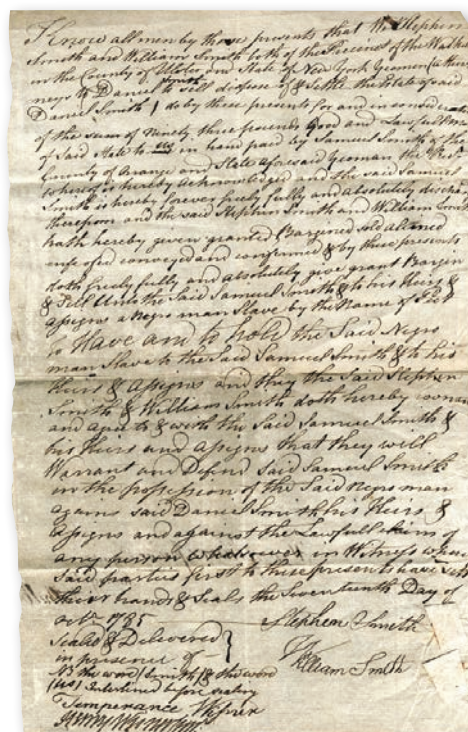 Know all men by those presents that We Stephen
Smith and William Smith both of the Precinct of the Wallkill
in the County of Ulster and State of New York Yeomen (atthor
neys to Daniel Smith to sell dispose of & Settle the Estate of said
Daniel Smith) do by these presents for and in consideration
of the sum of Ninety three pounds Good and Lawful Money
of Said State to us in hand paid by Samuel Smith of the
County of Orange and State aforesaid Yeoman the Rest
whereof is hereby acknowledged and the said Samuel
Smith is hereby forever freely fully and absolutely discharged
therefrom and the said Stephen Smith and William Smith
hath hereby given granted Bargined sold aliened
enfeofed conveyed and confirmed & by these presents
doth freely fully and absolutely give grant Bargin
& Sell Unto the Said Samuel Smith & to his Heirs &
assigns a Negro man Slave by the Name of
to Have and to hold the Said Negro
man Slave to the Said Samuel Smith & to his
Heirs & assigns and they the Said Stephen
Smith & William Smith doth hereby
and agree to & with the Said Samuel Smith &
his Heirs and assigns that they will
Warrant and Defend said Samuel Smith
in the possession of the Said Negro man
agains said Daniel Smith his Heirs &
assigns and against the Lawfull claim of
any person whatsoever in Witness where
Said parties first to these presents have Sett
their hands & Seals the Seventeenth Day of
octr. 1785 Stephen Smith
Sealed & Delivered }
in presence of William Smith
NB the word (Smith) & the word
(us) Interlined before sealing
Temperance
Henry